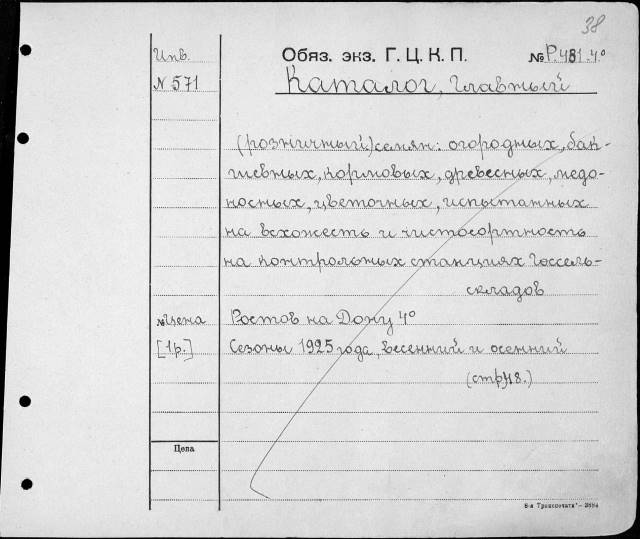 38
Инв. Обяз. экз. Г. Ц. К. П. № Р.481.4°
N 571 Каталог, главный
(розничный) семян: огородных, бах-
чевных, кормовых, древесных, медо-
носных, цветочных, испытанных
на всхожесть и чистосортность
на контрольных станциях Госсель-
складов
Цена Ростов на Дону 4°
[1р.] Сезоны 1925 года, весенний и осенний
(стр. 48.)
Цена